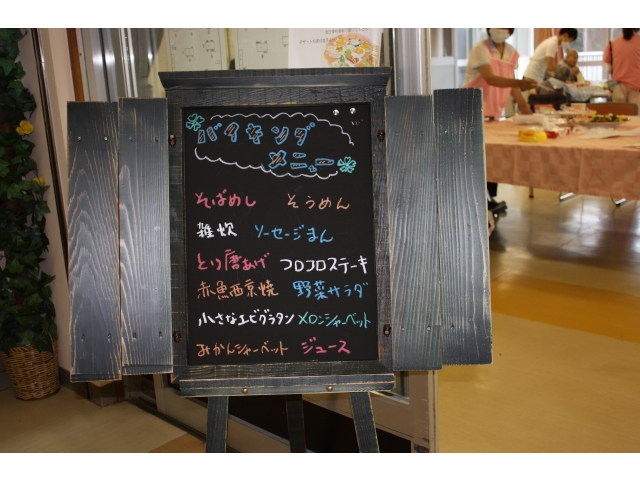 バイキング
メニュー
そばめし　そうめん
雑炊　ソーセージまん
とり唐あげ　コロコロステーキ
赤魚西京焼　野菜サラダ
小さなエビグラタン　メロンシャーベット
みかんシャーベット　ジュース